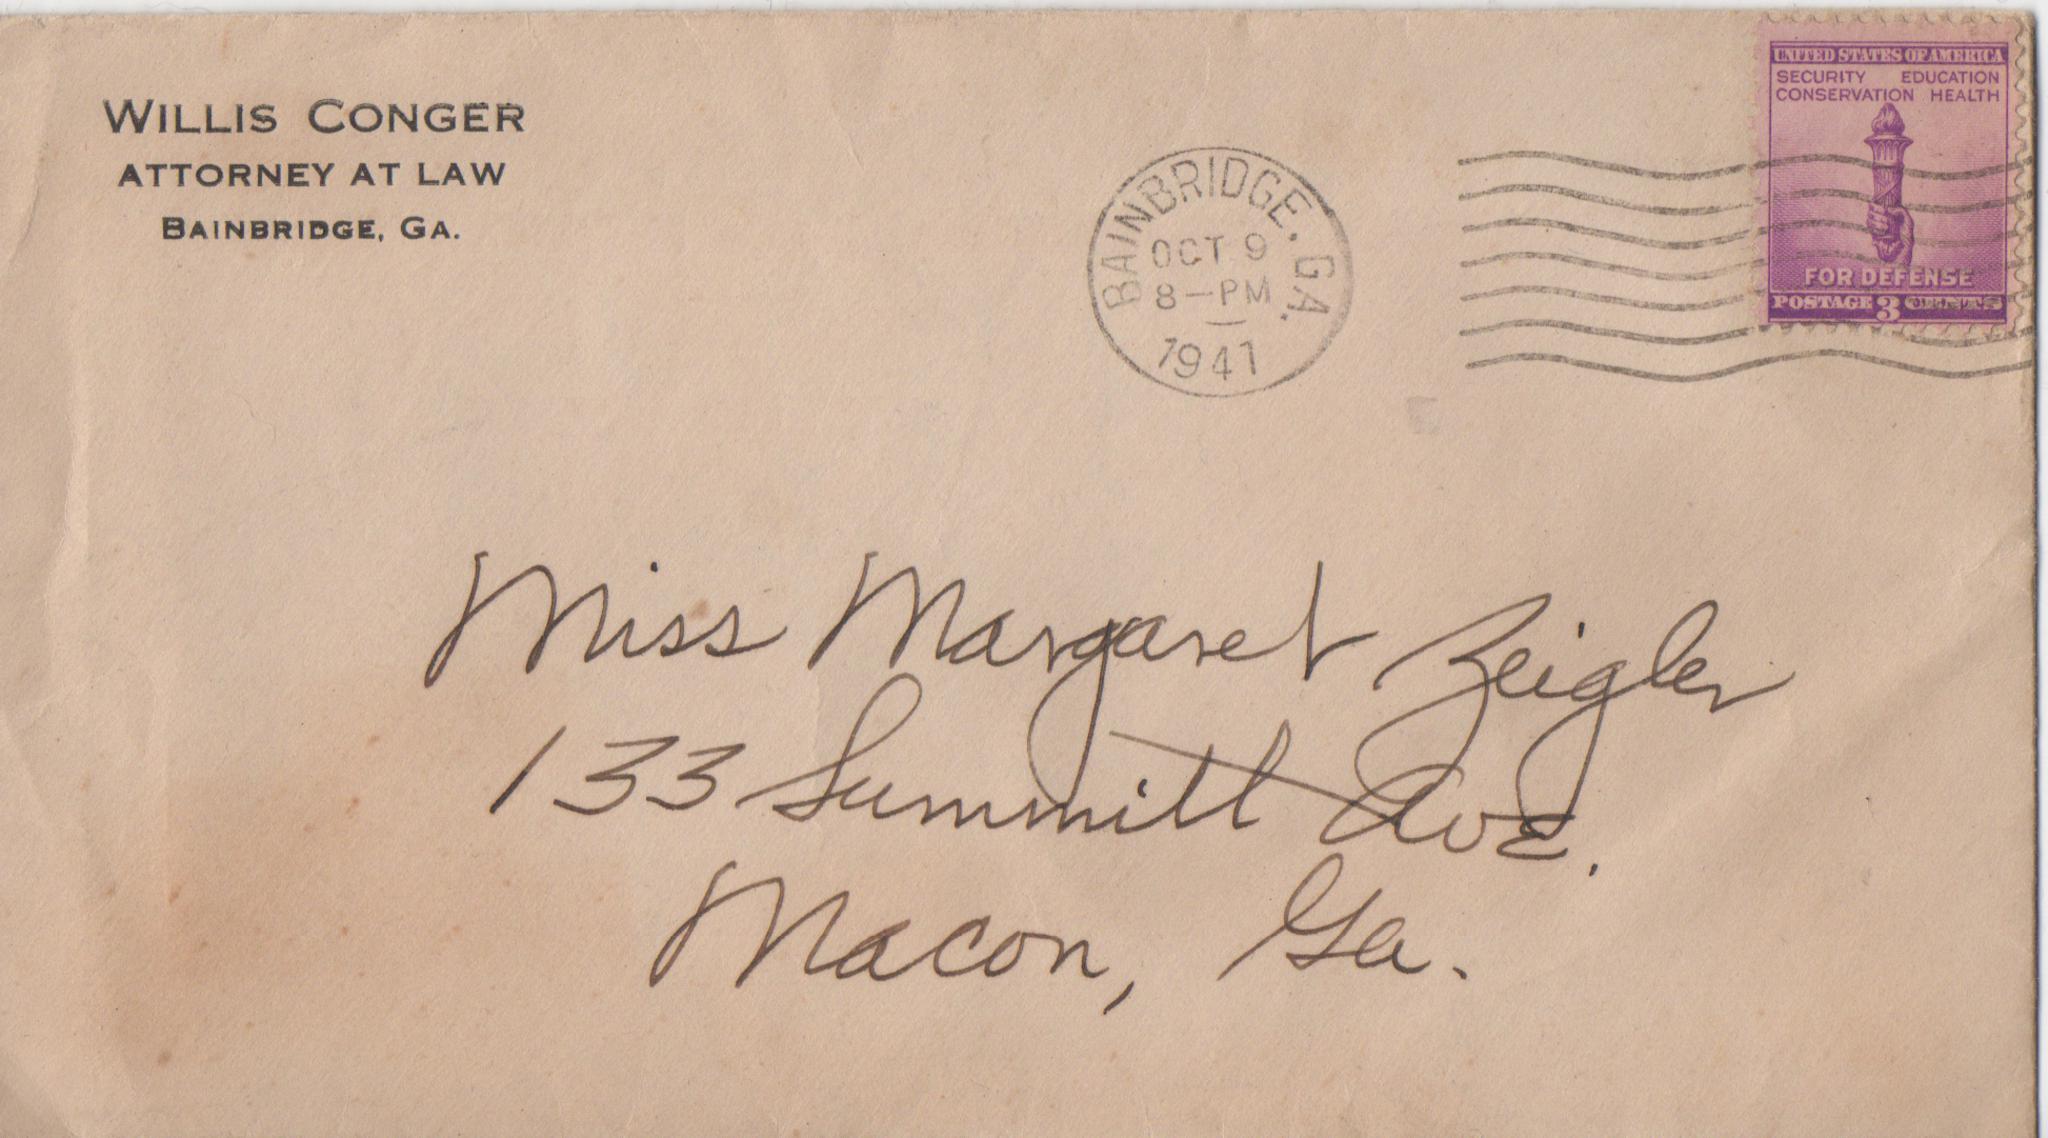 WILLIS CONGER
ATTORNEY AT LAW
BAINBRIDGE, GA.
BAINBRIDGE, GA.
OCT 9
8-PM
1941
UNITED STATES OF AMERICA
SECURITY EDUCATION
CONSERVATION HEALTH
FOR DEFENSE
POSTAGE 3 CENTS
Miss Margaret Zeigler
133 Summitt Ave.
Macon, Ga.